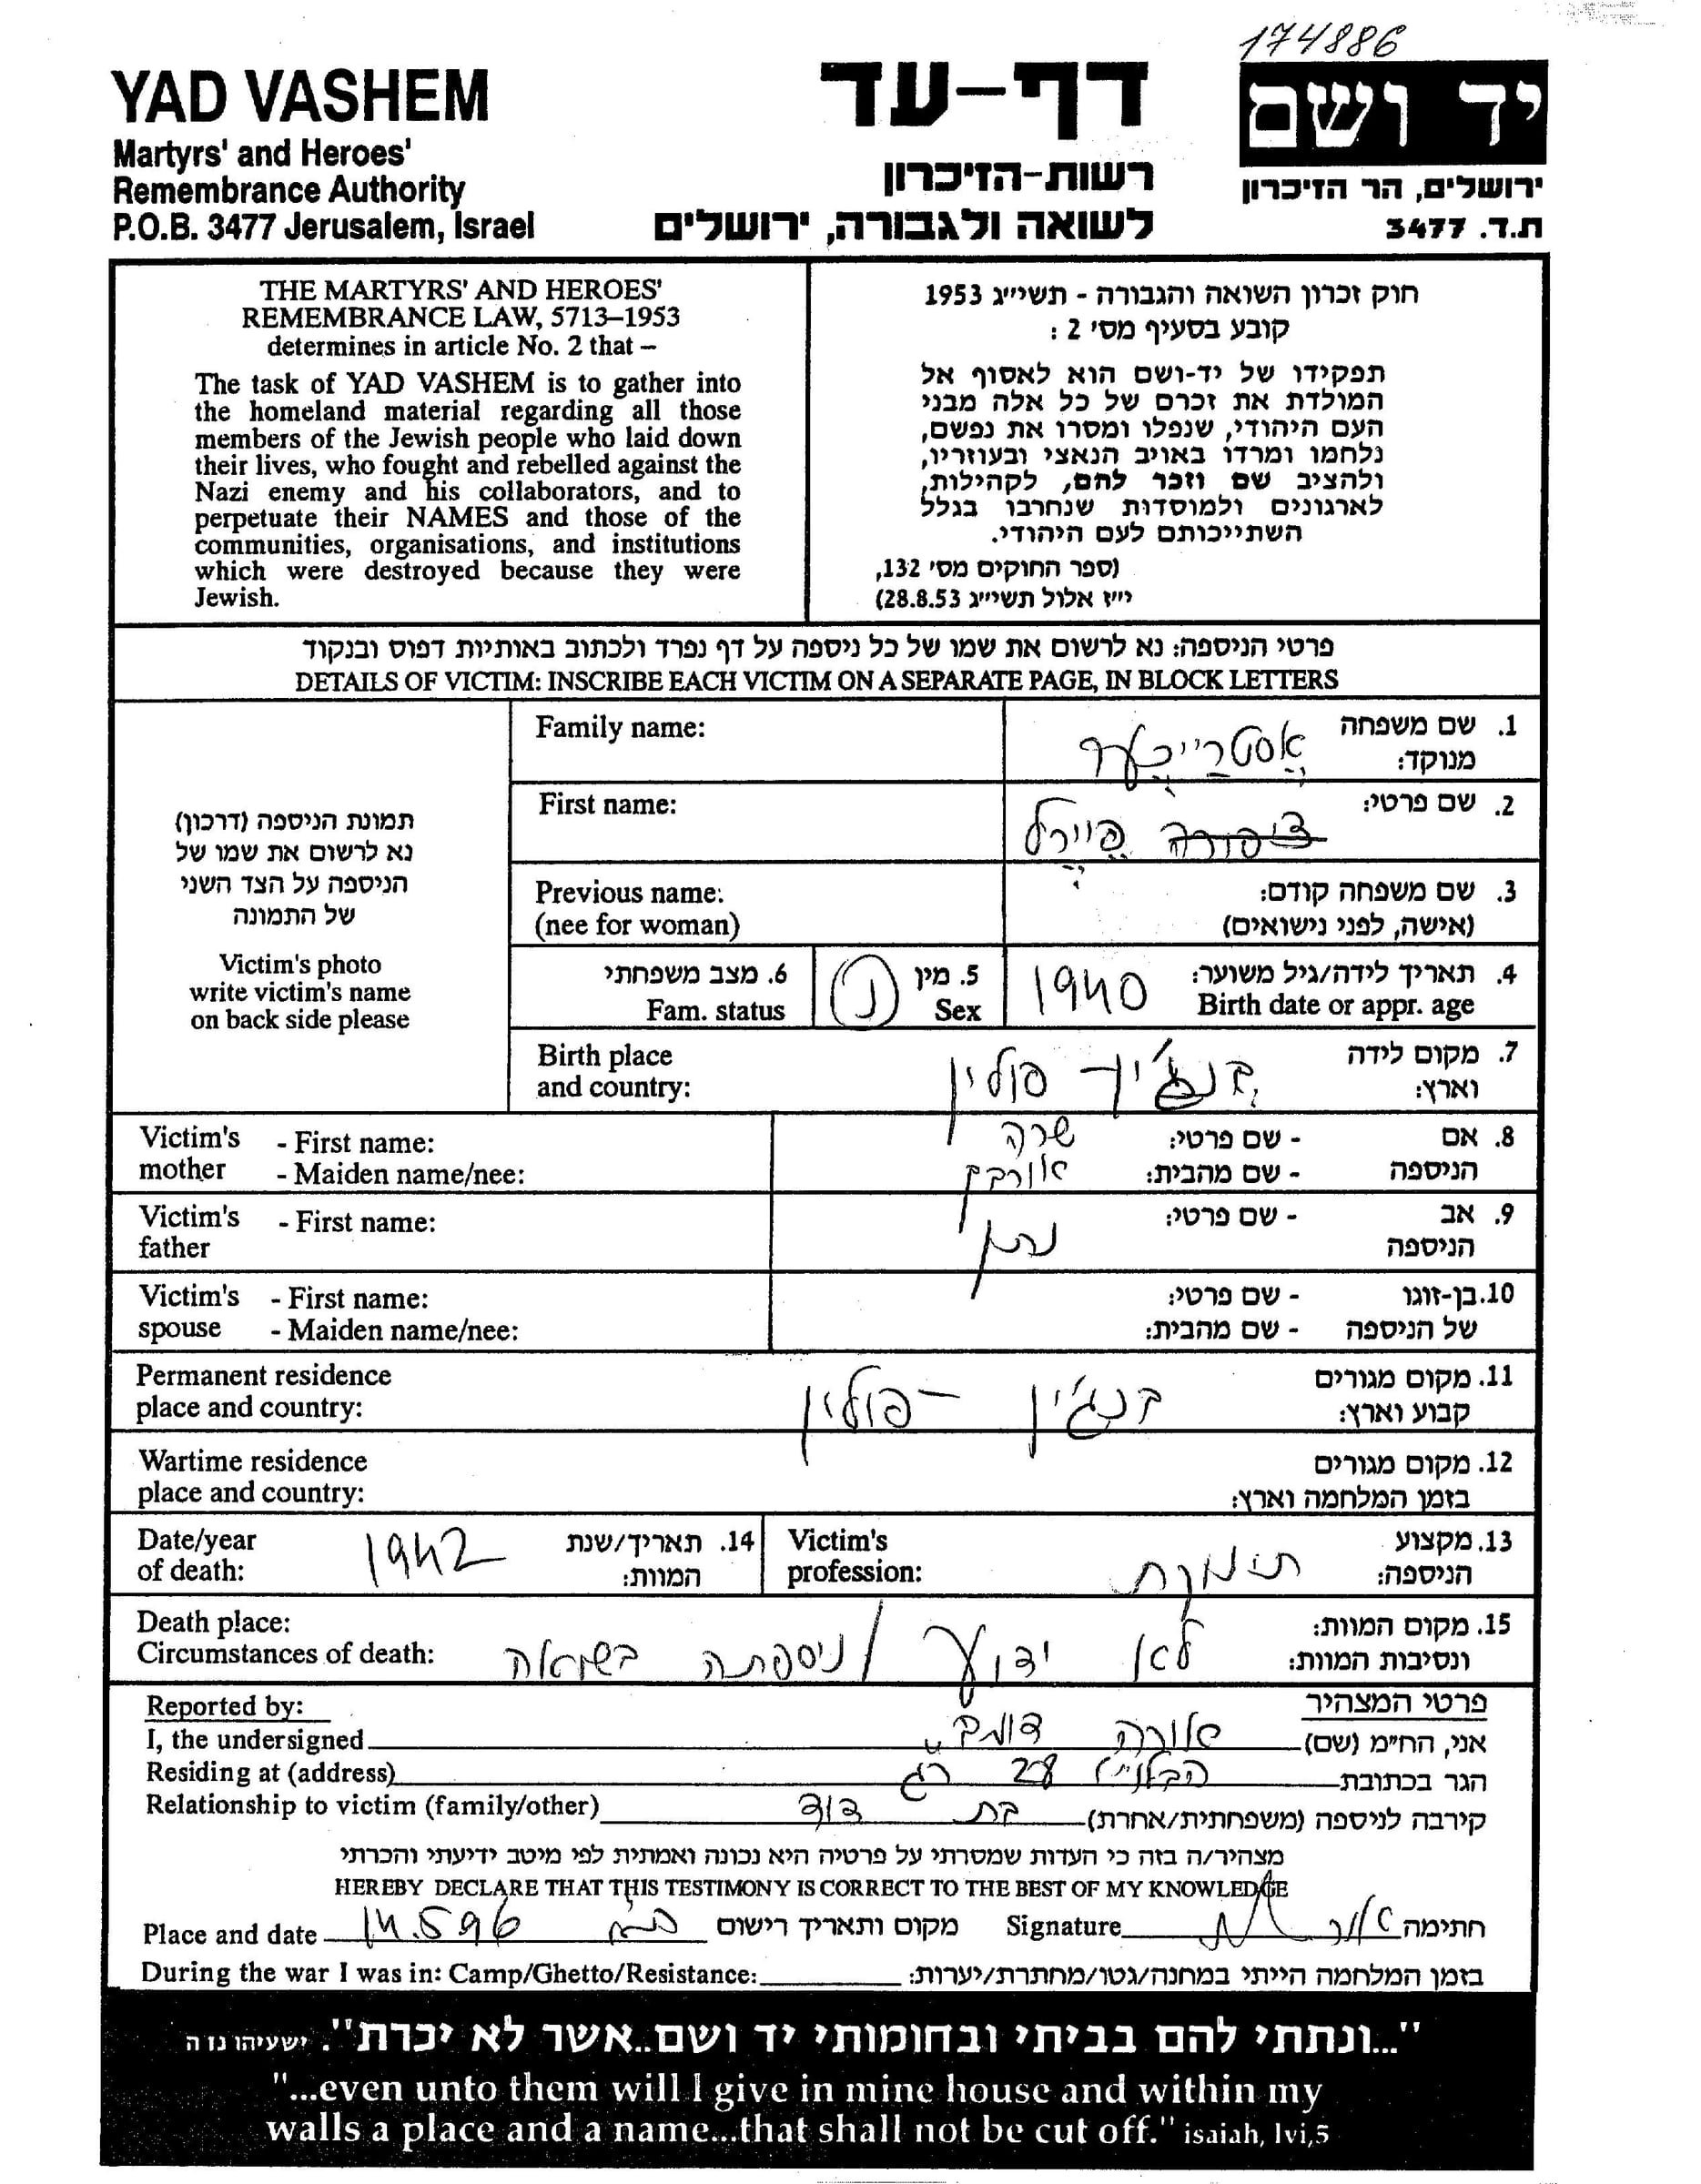 174886
YAD VASHEM
Martyrs' and Heroes'
Remembrance Authority
P.O.B. 3477 Jerusalem, Israel
דף-עד
רשות-הזיכרון
לשואה ולגבורה, ירושלים
יד ושם
ירושלים, הר הזיכרון
ת.ד. 3477
THE MARTYRS' AND HEROES'
REMEMBRANCE LAW, 5713–1953
determines in article No. 2 that –
The task of YAD VASHEM is to gather into
the homeland material regarding all those
members of the Jewish people who laid down
their lives, who fought and rebelled against the
Nazi enemy and his collaborators, and to
perpetuate their NAMES and those of the
communities, organisations, and institutions
which were destroyed because they were
Jewish.
חוק זכרון השואה והגבורה - תשי״ג 1953
קובע בסעיף מס׳ 2 :
תפקידו של יד-ושם הוא לאסוף אל
המולדת את זכרם של כל אלה מבני
העם היהודי, שנפלו ומסרו את נפשם,
נלחמו ומרדו באויב הנאצי ובעוזריו,
ולהציב שם וזכר להם, לקהילות,
לארגונים ולמוסדות שנחרבו בגלל
השתייכותם לעם היהודי.
(ספר החוקים מס׳ 132,
י״ז אלול תשי״ג 28.8.53)
פרטי הניספה: נא לרשום את שמו של כל ניספה על דף נפרד ולכתוב באותיות דפוס ובנקוד
DETAILS OF VICTIM: INSCRIBE EACH VICTIM ON A SEPARATE PAGE, IN BLOCK LETTERS
תמונת הניספה (דרכון)
נא לרשום את שמו של
הניספה על הצד השני
של התמונה
Victim's photo
write victim's name
on back side please
Family name: אסטרייכער 1. שם משפחה
מנוקד:
First name: פיירל 2. שם פרטי:
Previous name: 3. שם משפחה קודם:
(nee for woman) (אישה, לפני נישואים)
6. מצב משפחתי 5. מין נ 1940 4. תאריך לידה/גיל משוער:
Fam. status Sex Birth date or appr. age
Birth place בנג'ין פולין 7. מקום לידה
and country: וארץ:
Victim's - First name: שרה - שם פרטי: 8. אם
mother - Maiden name/nee: אורבך - שם מהבית: הניספה
Victim's - First name: נתן - שם פרטי: 9. אב
father הניספה
Victim's - First name: - שם פרטי: 10. בן-זוגו
spouse - Maiden name/nee: - שם מהבית: של הניספה
Permanent residence בנג'ין - פולין 11. מקום מגורים
place and country: קבוע וארץ:
Wartime residence 12. מקום מגורים
place and country: בזמן המלחמה וארץ:
Date/year 1942 14. תאריך/שנת Victim's 13. מקצוע
of death: המוות: profession: תינוקת הניספה:
Death place: 15. מקום המוות:
Circumstances of death: לא ידוע / ניספתה בשואה ונסיבות המוות:
Reported by: פרטי המצהיר
I, the undersigned אורה דומב אני, החי״מ (שם)
Residing at (address) 28 רג הגר בכתובת
Relationship to victim (family/other) בת דוד קירבה לניספה (משפחתית/אחרת)
מצהיר/ה בזה כי העדות שמסרתי על פרטיה היא נכונה ואמתית לפי מיטב ידיעתי והכרתי
HEREBY DECLARE THAT THIS TESTIMONY IS CORRECT TO THE BEST OF MY KNOWLEDGE
Place and date 14.5.96 מקום ותאריך רישום Signature חתימה
During the war I was in: Camp/Ghetto/Resistance: בזמן המלחמה הייתי במחנה/גטו/מחתרת/יערות:
"...ונתתי להם בביתי ובחומותי יד ושם..אשר לא יכרת". ישעיהו נו ה
"...even unto them will I give in mine house and within my
walls a place and a name...that shall not be cut off." isaiah, lvi,5